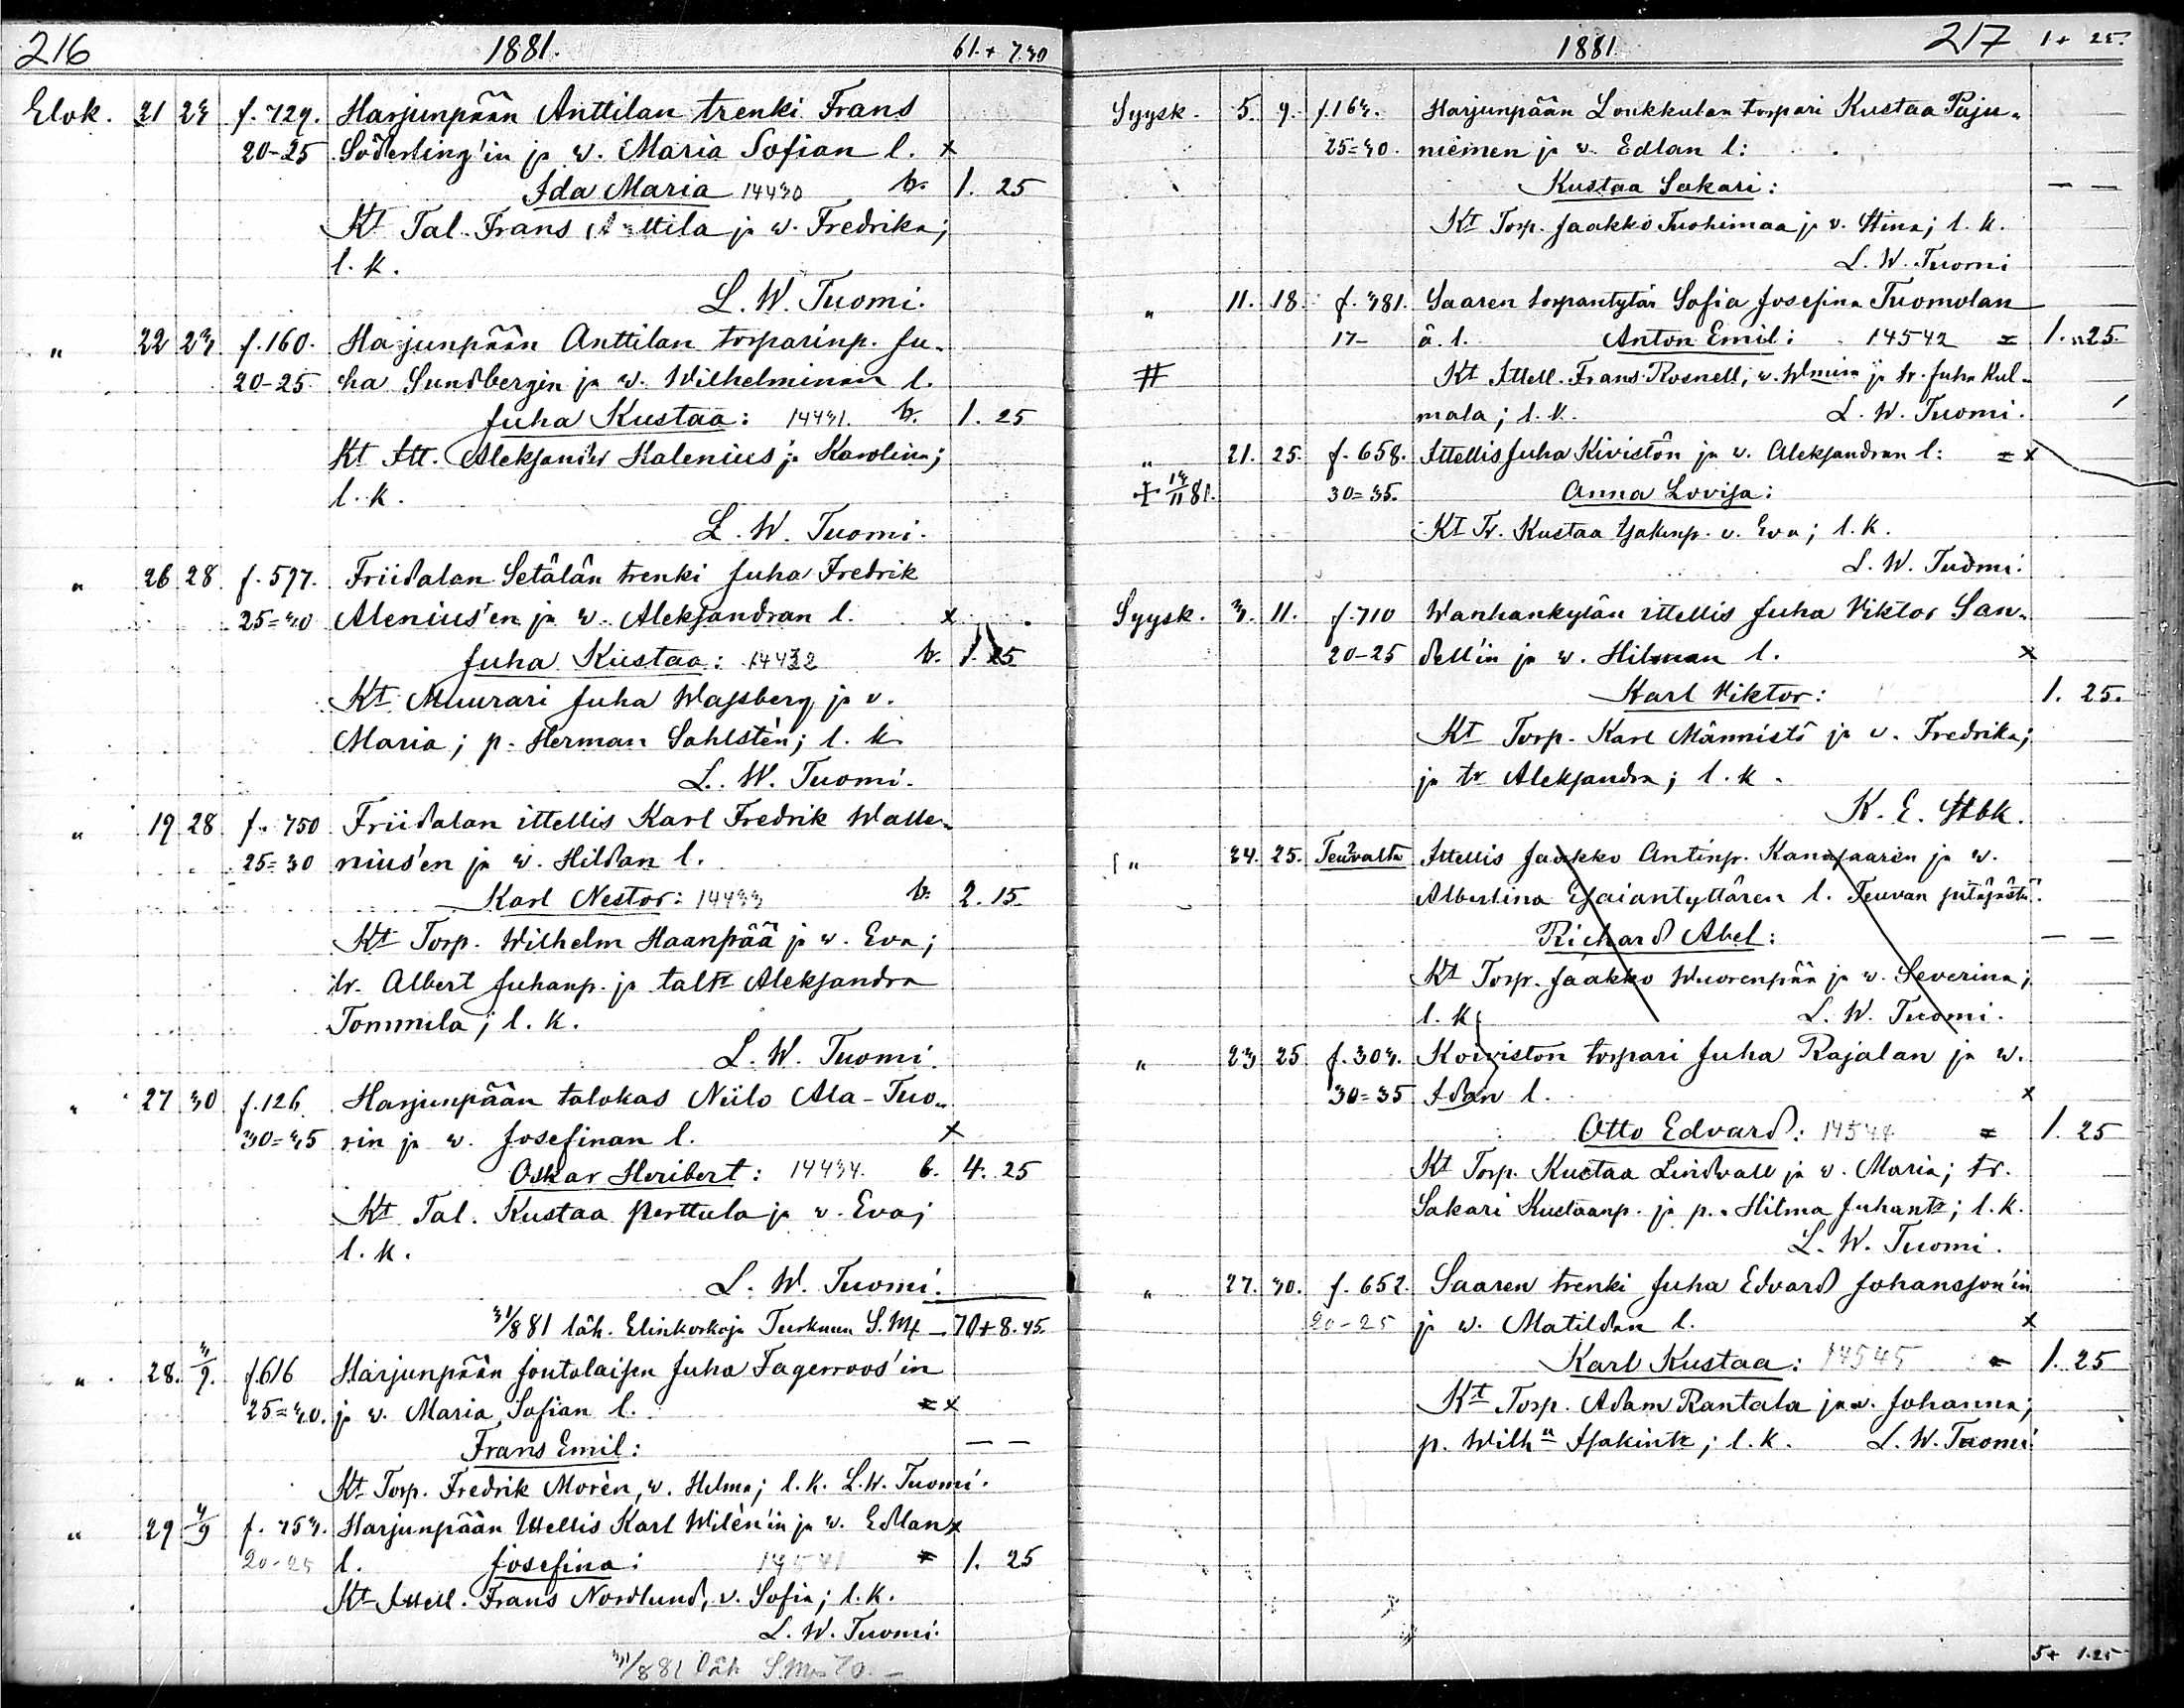 216 1881. 61.+ 7.30
Elok. 21 23 f. 729. Harjunpään Anttilan trenki Frans
20-25 Söderling'in ja w. Maria Sofian l. x
Ida Maria 14430 tr. 1. 25
Kt Tal. Frans Anttila ja w. Fredrika;
l. k.
L. W. Tuomi.
" 22 23 f. 160. Harjunpään Anttilan torparinp. Ju-
20-25. ha Sundbergin ja w. Wilhelminan l.
Juha Kustaa: 14431. tr. 1. 25
Kt Itt. Aleksander Kalenius ja Karolina;
l. k.
L. W. Tuomi.
" 26 28. f. 597. Friidalan Setälän trenki Juha Fredrik
25=30 Alenius'en ja w. Aleksandran l. x
Juha Kustaa: 14432 tr. 1. 25
Kt Muurari Juha Wassberg ja v.
Maria; p. Herman Sahlstèn; l. k.
L. W. Tuomi.
" 19 28 f. 750 Friidalan ittellis Karl Fredrik Walle-
25=30 nius'en ja w. Hildan l.
Karl Nestor: 14433 tr. 2. 15.
Kt Torp. Wilhelm Haanpää ja w. Eva;
tr. Albert Juhanp. ja taltr Aleksandra
Tommila; l. k.
L. W. Tuomi.
" 27 30 f. 126 Harjunpään talokas Niilo Ala-Tuo-
30=35 rin ja w. Josefinan l. x
Oskar Heribert: 14434. 6. 4. 25
Kt Tal. Kustaa Perttula ja w. Eva;
l. k.
L. W. Tuomi.
31/8 81 läh. Turkuun 70+8.45.
" 28. 3/9. f. 616 Harjunpään joutolaisen Juha Fagerroos'in
25=30. ja v. Maria Sofian l. = x
Frans Emil: — —
Kt Torp. Fredrik Morèn, v. Helma; l. k. L. W. Tuomi.
" 29 4/9 f. 753. Harjunpään Ittellis Karl Wilèn'in ja w. Edlan x
20-25 l. Josefina: 14541 = 1. 25
Kt Ittell. Frans Nordlund, v. Sofia; l. k.
L. W. Tuomi.
31/8 81 läh
1881. 217 1+ 25.
Syysk. 5. 9. f. 163. Harjunpään Loukkulan torpari Kustaa Paju-
25=30. niemen ja w. Edlan l:
Kustaa Sakari: — —
Kt Torp. Jaakko Tuohimaa ja v. Stina; l. k.
L. W. Tuomi
" 11. 18. f. 381. Saaren torpantytär Sofia Josefina Tuomolan
17- ä. l. Anton Emil: 14542 = 1. 25.
# Kt Ittell. Frans Rosnell, w. Wmina ja tr. Juha Kul-
mala; l. k. L. W. Tuomi.
" 21. 25. f. 658. Ittellis Juha Kivistön ja w. Aleksandran l: = x
+ 13/11 81. 30=35. Anna Lovisa:
Kt Tr. Kustaa Isakinp. v. Eva; l. k.
L. W. Tuomi.
Syysk. 3. 11. f. 710 Wanhankylän ittellis Juha Viktor San-
20-25 dell'in ja w. Hilman l. x
Karl Viktor: 1. 25.
Kt Torp. Karl Männistö ja v. Fredrika;
ja tr Aleksandra; l. k.
K. E. Stbk.
" 24. 25. Teuvalta Ittellis Jaakko Antinp. Kanasaaren ja w.
Albertina Esaiantyttären l. Teuvan pitäjästä.
Richard Abel: — —
Kt Torp. Jaakko Wuorenpää ja w. Severina;
l. k. L. W. Tuomi.
" 23 25 f. 303. Koiviston torpari Juha Rajalan ja w.
30=35 Idan l. x
Otto Edvard: 14544 = 1. 25
Kt Torp. Kustaa Lindvall ja v. Maria; tr.
Sakari Kustaanp. ja p. Hilma Juhantr; l. k.
L. W. Tuomi.
" 27. 30. f. 652. Saaren trenki Juha Edvard Johansson'in
20-25 ja w. Matildan l. x
Karl Kustaa: 14545 = 1. 25
Kt Torp. Adam Rantala ja w. Johanna;
p. Wilha Isakintr; l. k. L. W. Tuomi
5+ 1.25